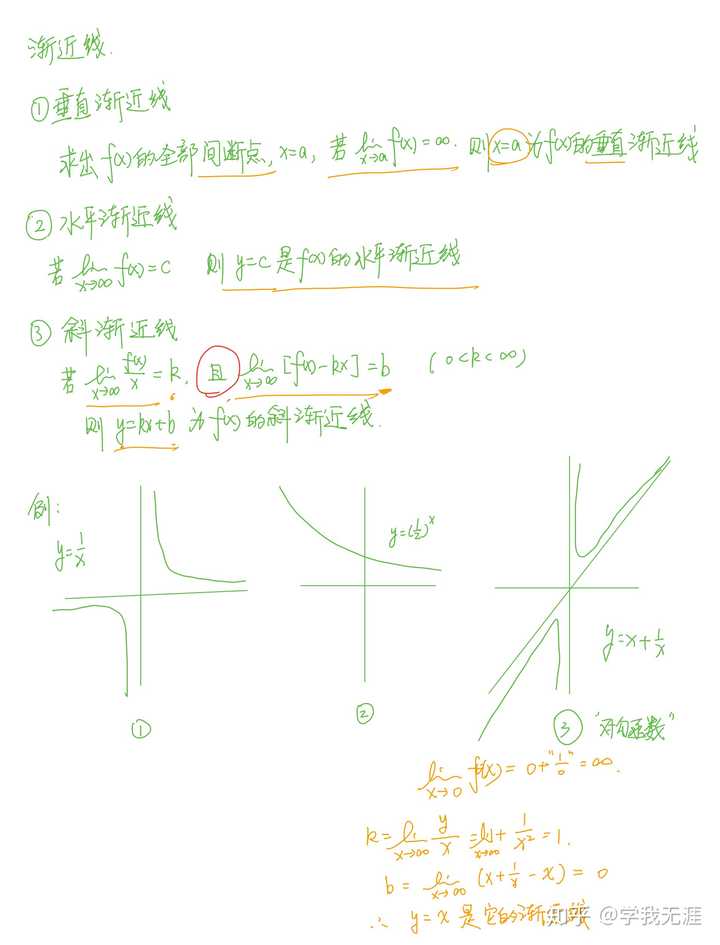 渐近线.
①垂直渐近线
求出f(x)的全部间断点, x=a, 若 lim x→a f(x)=∞. 则 x=a 为f(x)的垂直渐近线
② 水平渐近线
若 lim x→∞ f(x)=c 则 y=c 是f(x)的水平渐近线
③ 斜渐近线
若 lim x→∞ f(x)/x = k, 且 lim x→∞ [f(x)-kx]=b (0<k<∞)
则 y=kx+b 为f(x)的斜渐近线.
例:
y=1/x
y=(1/2)^x
y=x+1/x
①
②
③ "对勾函数"
lim x→0 f(x) = 0+"1/0"=∞.
k=lim x→∞ y/x = lim x→∞ 1+1/x²=1.
b = lim x→∞ (x+1/x-x) = 0
∴ y=x 是它的渐近线
知乎 @学我无涯